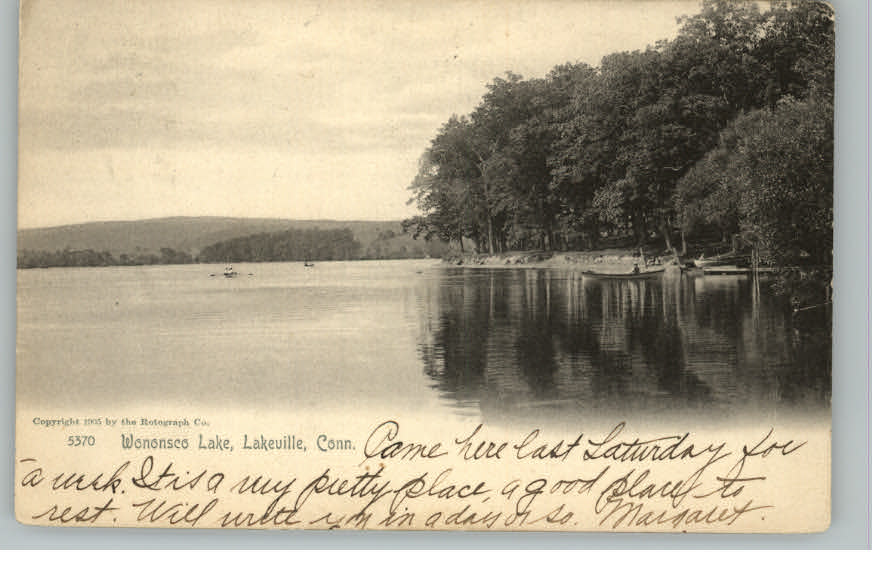 Copyright 1905 by the Rotograph Co.
5370 Wononsco Lake, Lakeville, Conn.
Came here last Saturday for
a week. It is a very pretty place, a good place to
rest. Will write you in a day or so. Margaret.